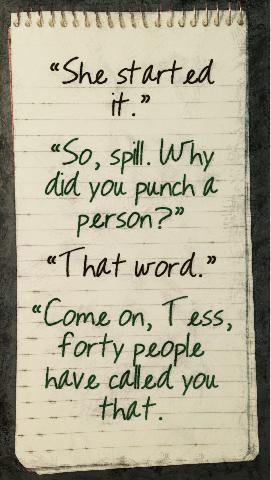 “She started
it.”
“So, spill. Why
did you punch a
person?”
“That word.”
“Come on, Tess,
forty people
have called you
that.